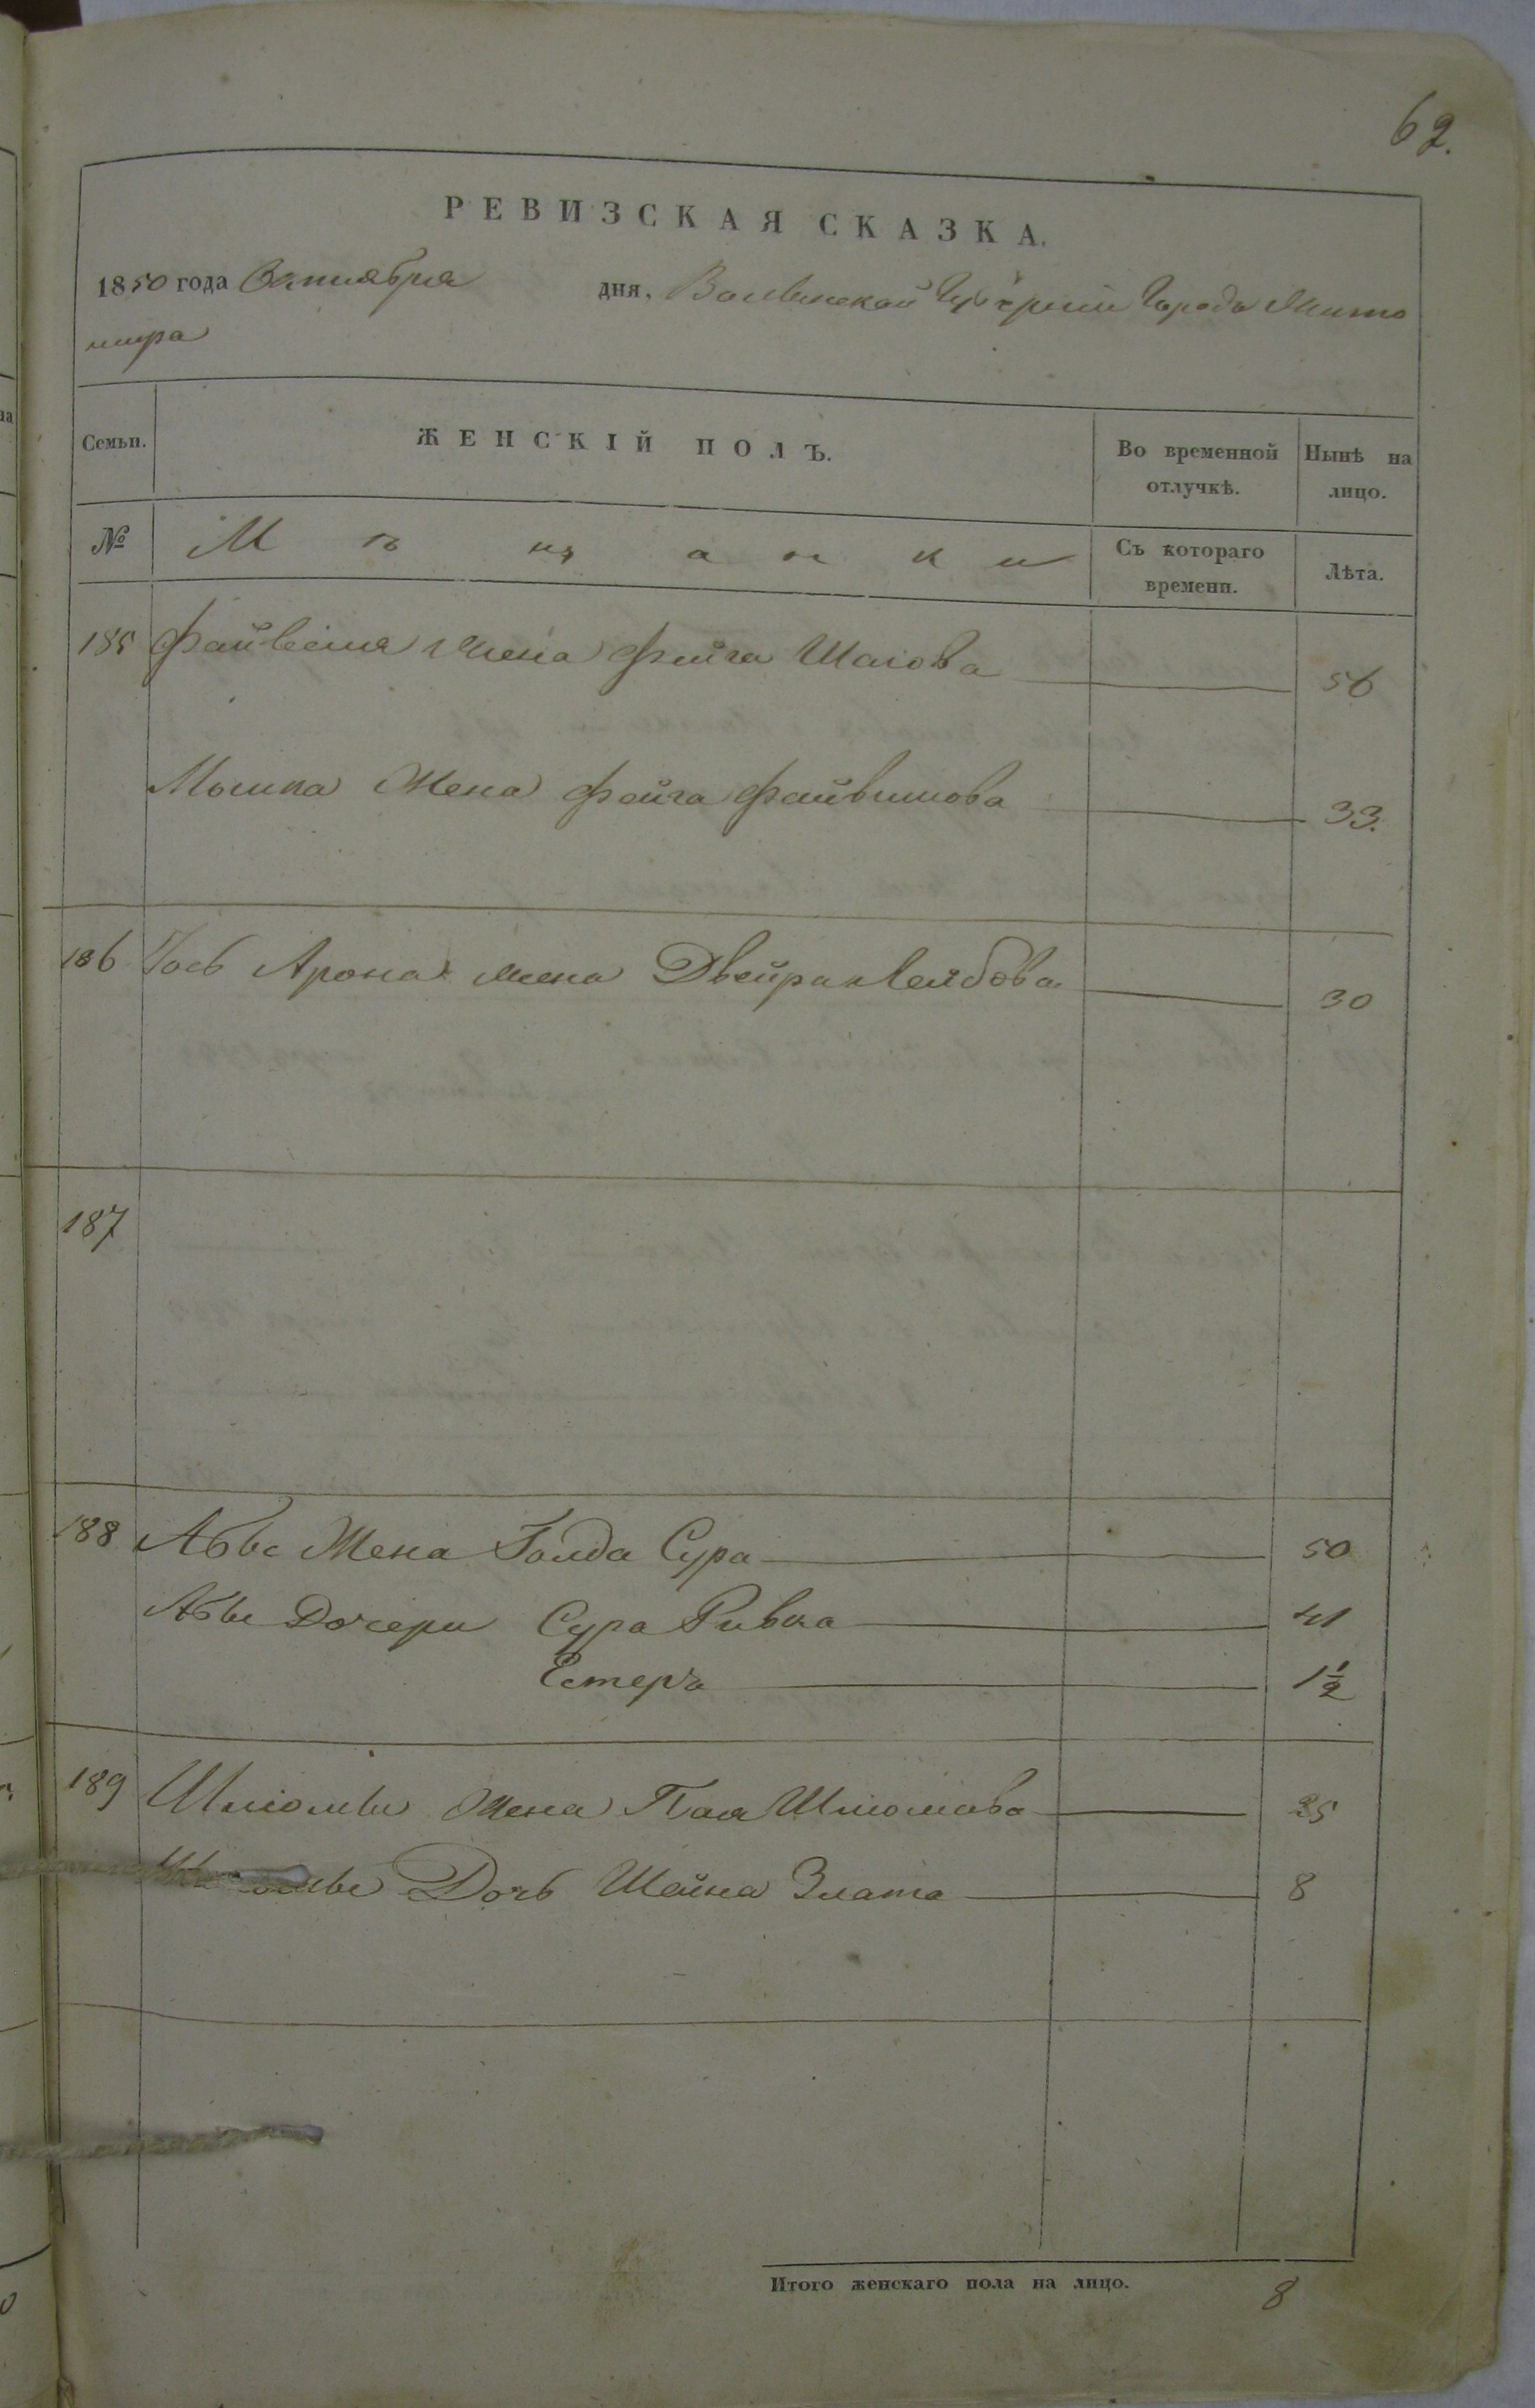 62.
РЕВИЗСКАЯ СКАЗКА.
1850 года Октября дня, Волынской Губернии Города Жито
мира
Семьи. ЖЕНСКІЙ ПОЛЪ. Во временной отлучкѣ. Нынѣ на лицо.
№ Мѣщанки Съ котораго времени. Лѣта.
185 Файвиша жена Фейга Шаіова 56
Мошка Жена Фейга Файвишова 33.
186 Іось Арона жена Двейра Лейбова 30
187
188 Аббе Жена Голда Сура 50
Аббе Дочери Сура Ривка 41
Естеръ 1½
189 Шліомы Жена Пая Шліомова 25
Дочь Шейна Злата 8
Итого женскаго пола на лицо. 8